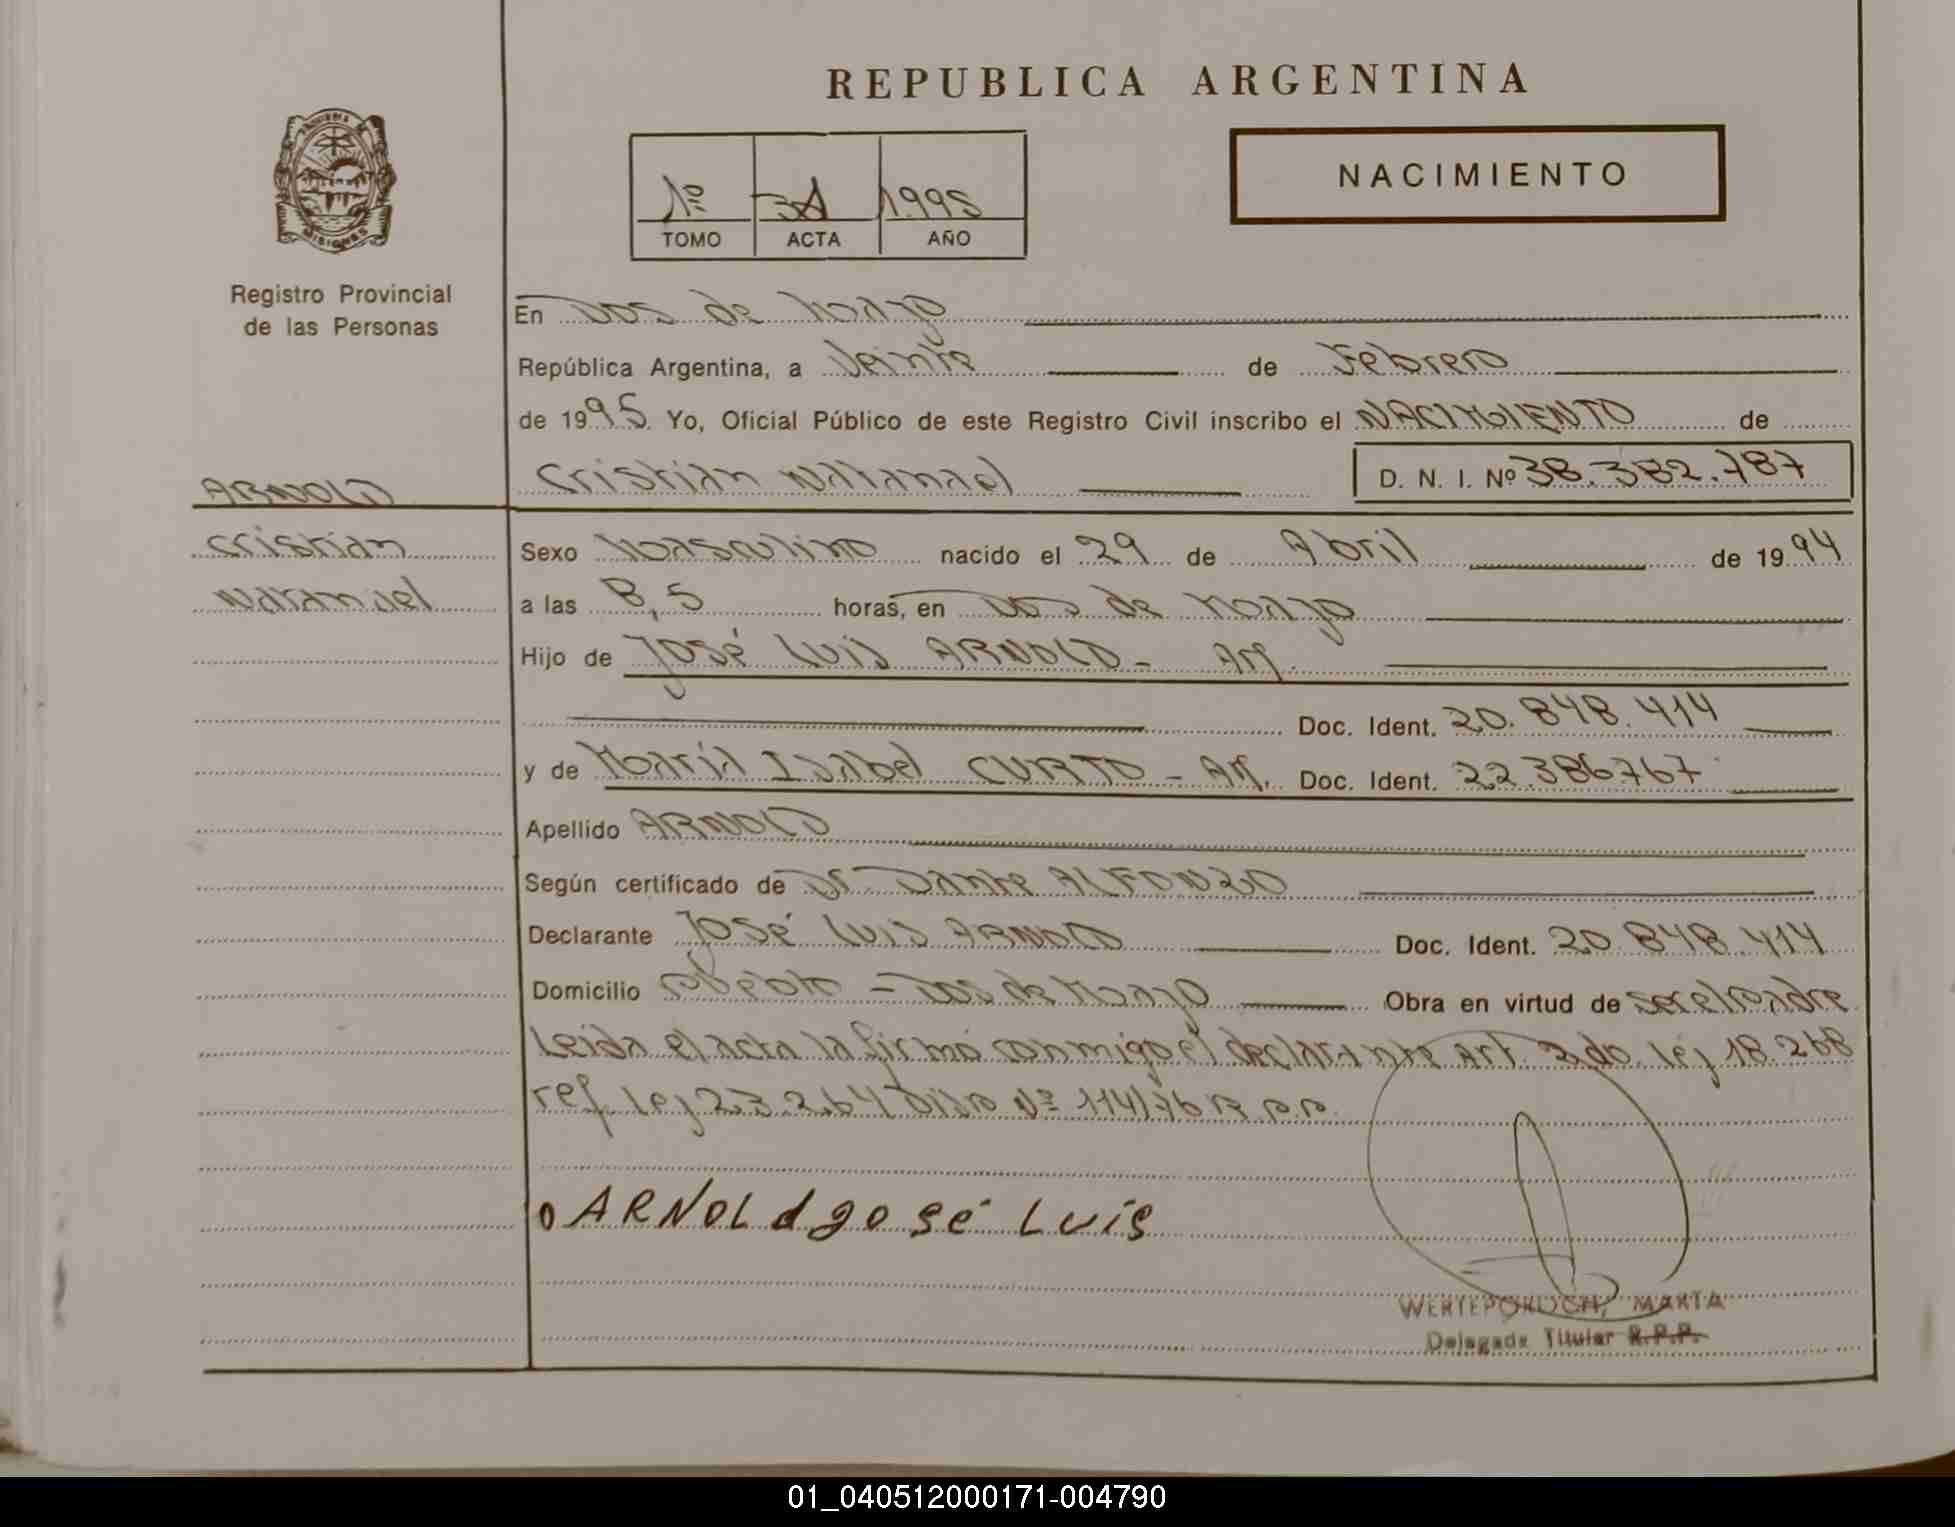 REPUBLICA ARGENTINA
NACIMIENTO
1º 1995
TOMO ACTA AÑO
MISIONES
Registro Provincial
de las Personas
En Dos de Mayo
República Argentina, a Veinte de Febrero
de 1995 Yo, Oficial Público de este Registro Civil inscribo el NACIMIENTO de
Cristian Natanael D. N. I. Nº 38.382.787
ARNOLD
Cristian
Natanael
Sexo Masculino nacido el 29 de Abril de 1994
a las 8,5 horas, en Dos de Mayo
Hijo de José Luis ARNOLD - Arg.
Doc. Ident. 20.848.414
y de María Isabel CURTO - Arg. Doc. Ident. 22.386767
Apellido ARNOLD
Según certificado de Dr. Dante ALFONZO
Declarante José Luis ARNOLD Doc. Ident. 20.848.414
Domicilio - Dos de Mayo Obra en virtud de ser el padre
Leida el acta la firmó conmigo el declarante Art. 2do. ley 18.268
ref. ley 23.264 Nº 114/76 R.P.P.
ARNOLd José Luis
MARTA
Delegada Titular R.P.P.
01_040512000171-004790